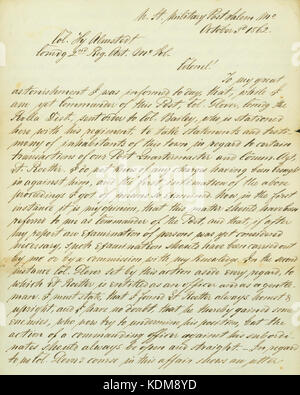 H. Qt. Military Post Salem Mo
October 5th 1862.
Col. Hy Almstedt
comdg 2nd Reg. Art. Mo. Vol.
Colonel!
To my great
astonishment I was informed to day, that, while I
am yet Commander of this Post, Col. Glover, comdg the
Rolla Distr., sent order to Col. Bailey, who is stationed
here with his regiment, to take statements and testi-
mony of inhabitants of this town, in regard to certain
transactions of our Post Quartermaster and Commis.
Lt. Koetter. I do not know of any charges having been brought
in against him, and the first information of the above
proceedings I got of persons examined here. In the first
instance it is my opinion, that this matter should have been
referred to me as Commander of the Post, and that, if after
my report an examination of persons was yet considered
necessary, such examination should have been carried out
by me or by a commission with my knowledge. In the second
instance Col. Glover set by this action aside every regard, to
which Lt. Koetter is entitled as an officer and as a gentle-
man. I must state, that I found Lt. Koetter always honest &
upright, and I have no doubt, that he thereby gained some
enemies, who now try to undermine his position, but the
action of a commanding officer against his subordi-
nates should always be open and straight. In regard
to me Col. Glover's course in this affair shows an utter
alamy
Image ID: KDM8YD
www.alamy.com